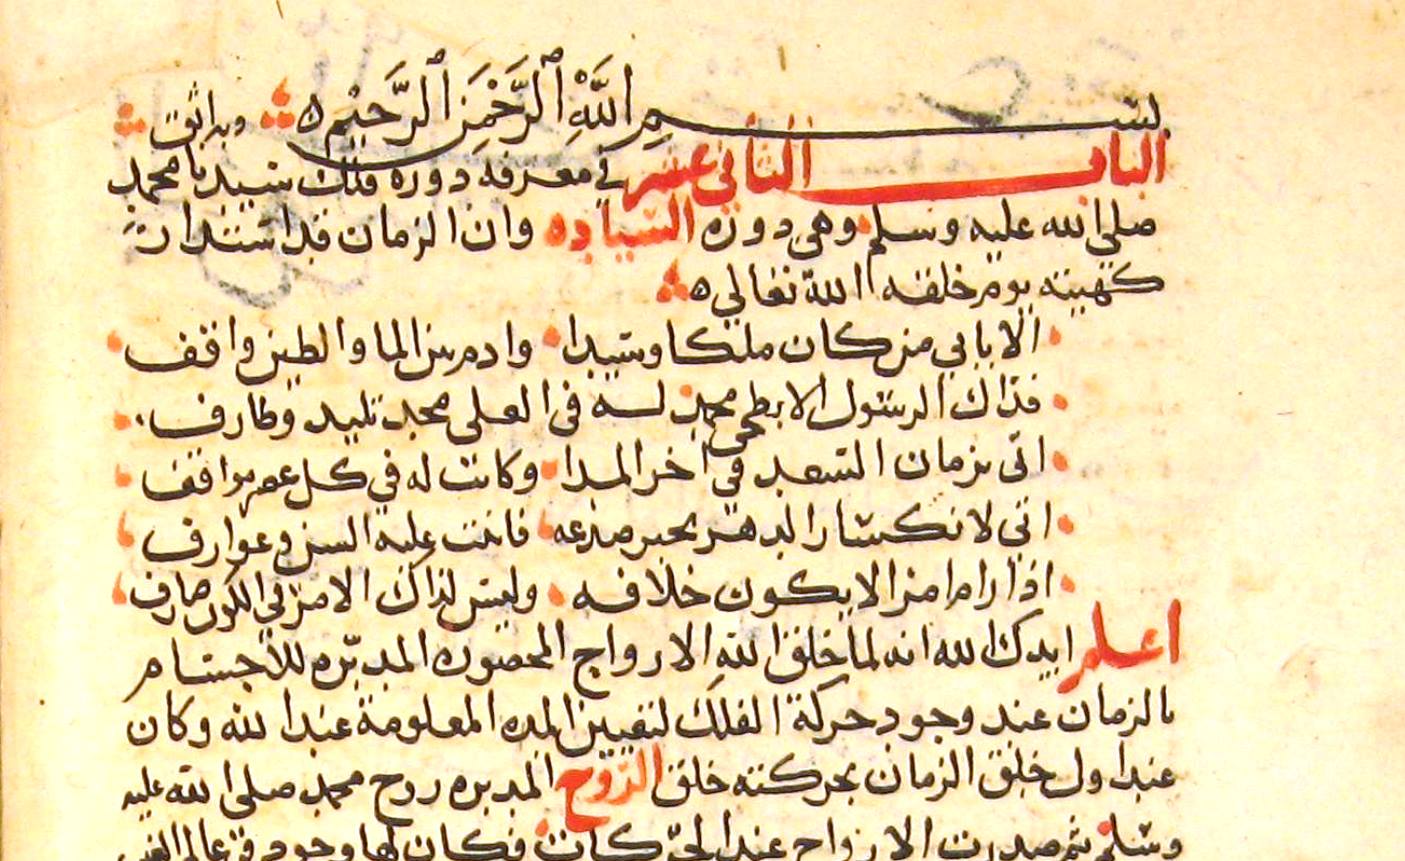 بسم اللَّهِ ٱلرَّحْمَنِ ٱلرَّحِيمِ ه وبه اثق
الباب الثاني عشر في معرفة دورة فلك سيدنا محمد
صلى الله عليه وسلم وهي دورة السياده وان الزمان قد استدار
كهيئته يوم خلقه الله تعالى ه
الا بابي من كان ملكا وسيدا وادم بين الما والطين واقف
فذاك الرسول الابطحي محمد له في العلى مجد تليد وطارف
اتى بزمان السعد في اخر المدا وكانت له في كل عصر مواقف
اتى لانكسار الدهر يجبر صدعه فاثنت عليه السن وعوارف
اذا رام امرا لا يكون خلافه وليس لذاك الامر في الكون صارف
اعلم ايدك الله انه لما خلق الله الارواح المحصورة المدبّره للاجسام
بالزمان عند وجود حركة الفلك لتعيين المده المعلومة عند الله وكان
عند اول خلق الزمان بحركته خلق الرّوح المدبره روح محمد صلى الله عليه
وسلم ثم صدرت الارواح عند الحركات فكان لها وجود في عالم الغيب